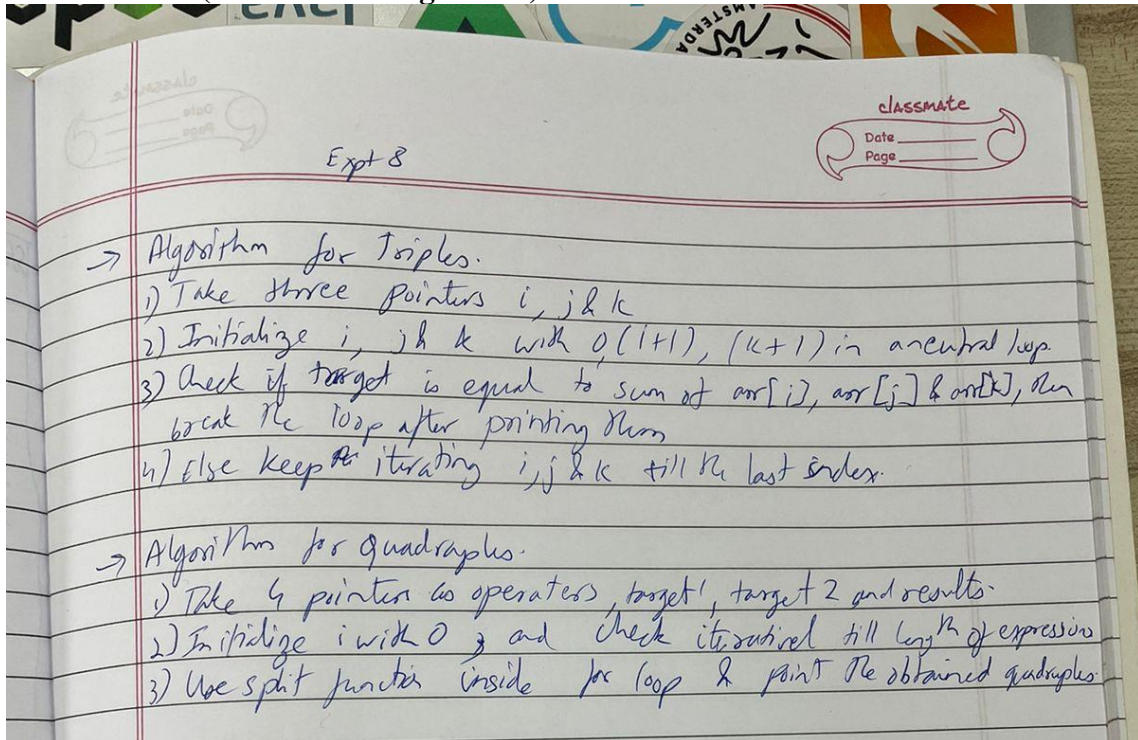 AMSTERDA
classmate
Date
Page
Expt 8
→ Algorithm for Triples.
1) Take three pointers i, j & k
2) Initialize i, j & k with 0, (i+1), (k+1) in a loop.
3) Check if target is equal to sum of arr[i], arr[j] & arr[k], then
break the loop after printing them
4) Else keep iterating i, j & k till the last index.
→ Algorithm for Quadraples.
1) Take 4 pointers as operaters, target1, target 2 and results.
2) Initialize i with 0 and check iterativel till length of expression
3) Use split function inside for loop & print the obtained quadruples.